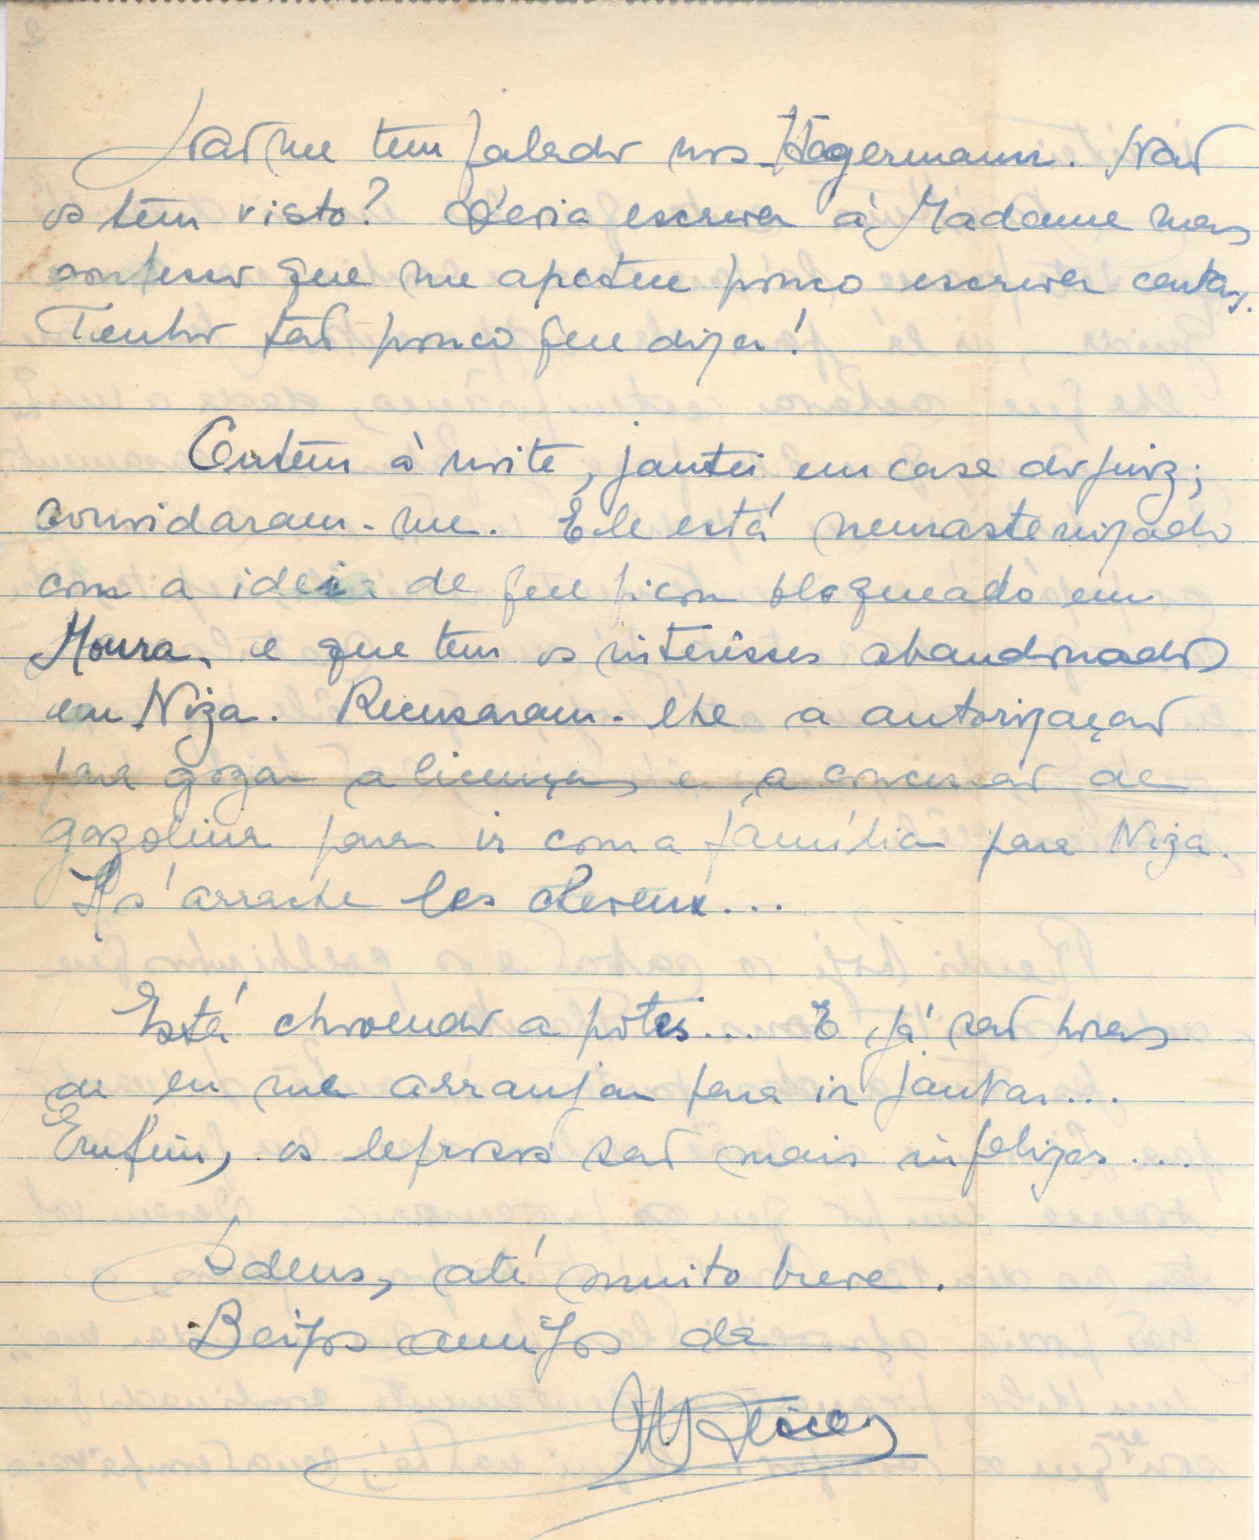 Não me tem falado nos Hagermann. Não
os têm visto? Devia escrever à Madame mas
confesso que me apetece pouco escrever cartas.
Tenho tão pouco que dizer!
Ontem à noite, jantei em casa do juiz;
convidaram-me. Ele está neurastenizado
com a ideia de que ficou bloqueado em
Moura, e que tem os interêsses abandonados
em Niza. Recusaram-lhe a autorização
para gozar a licença, e a concessão de
gazolina para ir com a família para Niza.
Il s'arrache les cheveux...
Está chovendo a potes... E já são horas
de eu me arranjar para ir jantar...
Enfim, os leprosos são mais infelizes....
Adeus, até muito breve.
Beijos amigos da